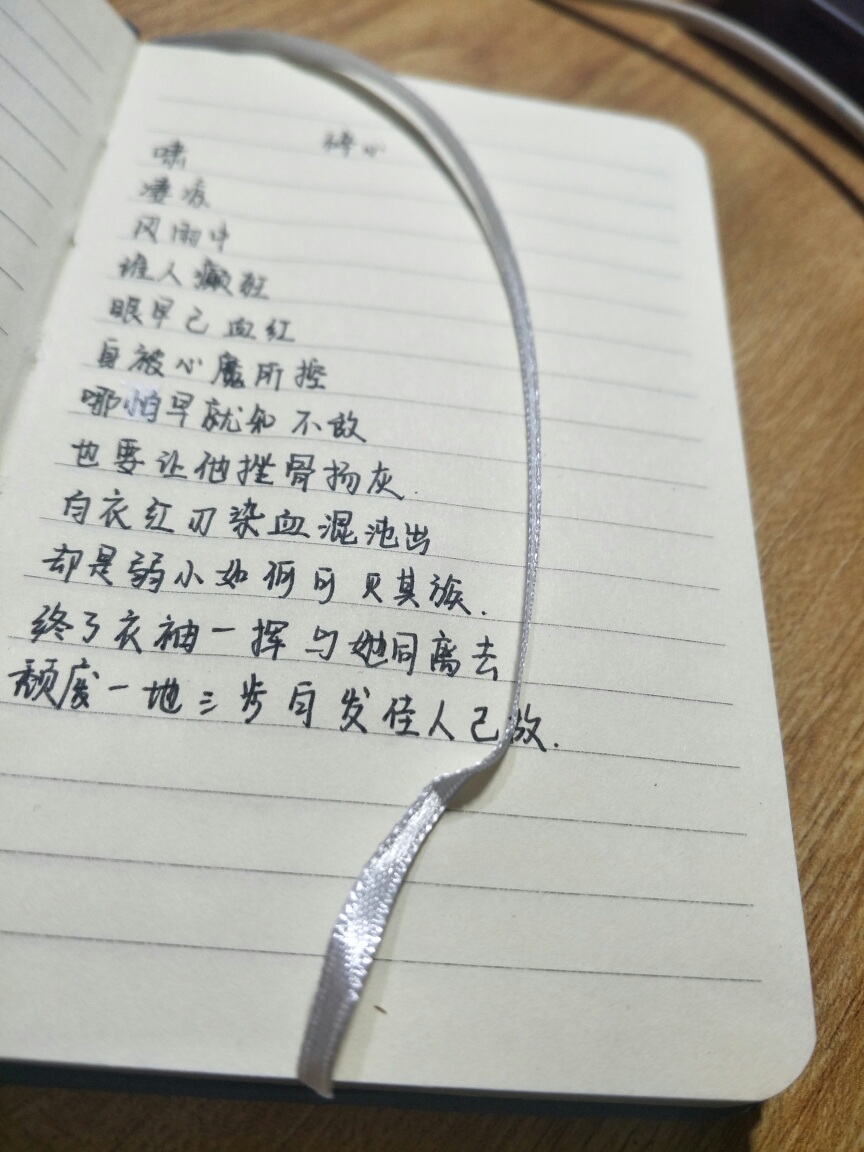 啸
凄凉
风雨中
谁人癫狂
眼早已血红
身被心魔所控
哪怕早就知不敌
也要让他挫骨扬灰.
白衣红刃染血混沌出
却是弱小如何可灭其族.
终了衣袖一挥与她同离去
颓废一地三步白发佳人已故.